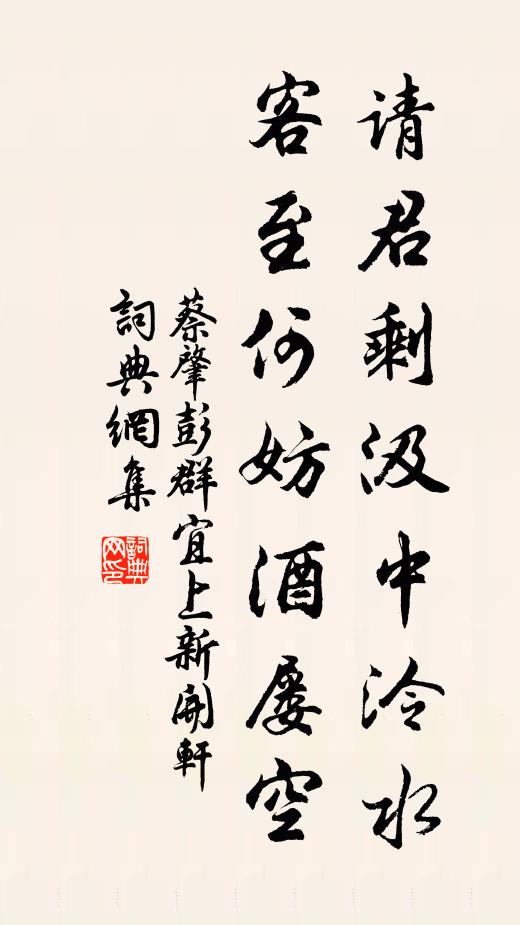 请君剩汲中泠水
客至何妨酒屡空
蔡肇彭群宜上新開軒
詞典網集
詞典网印